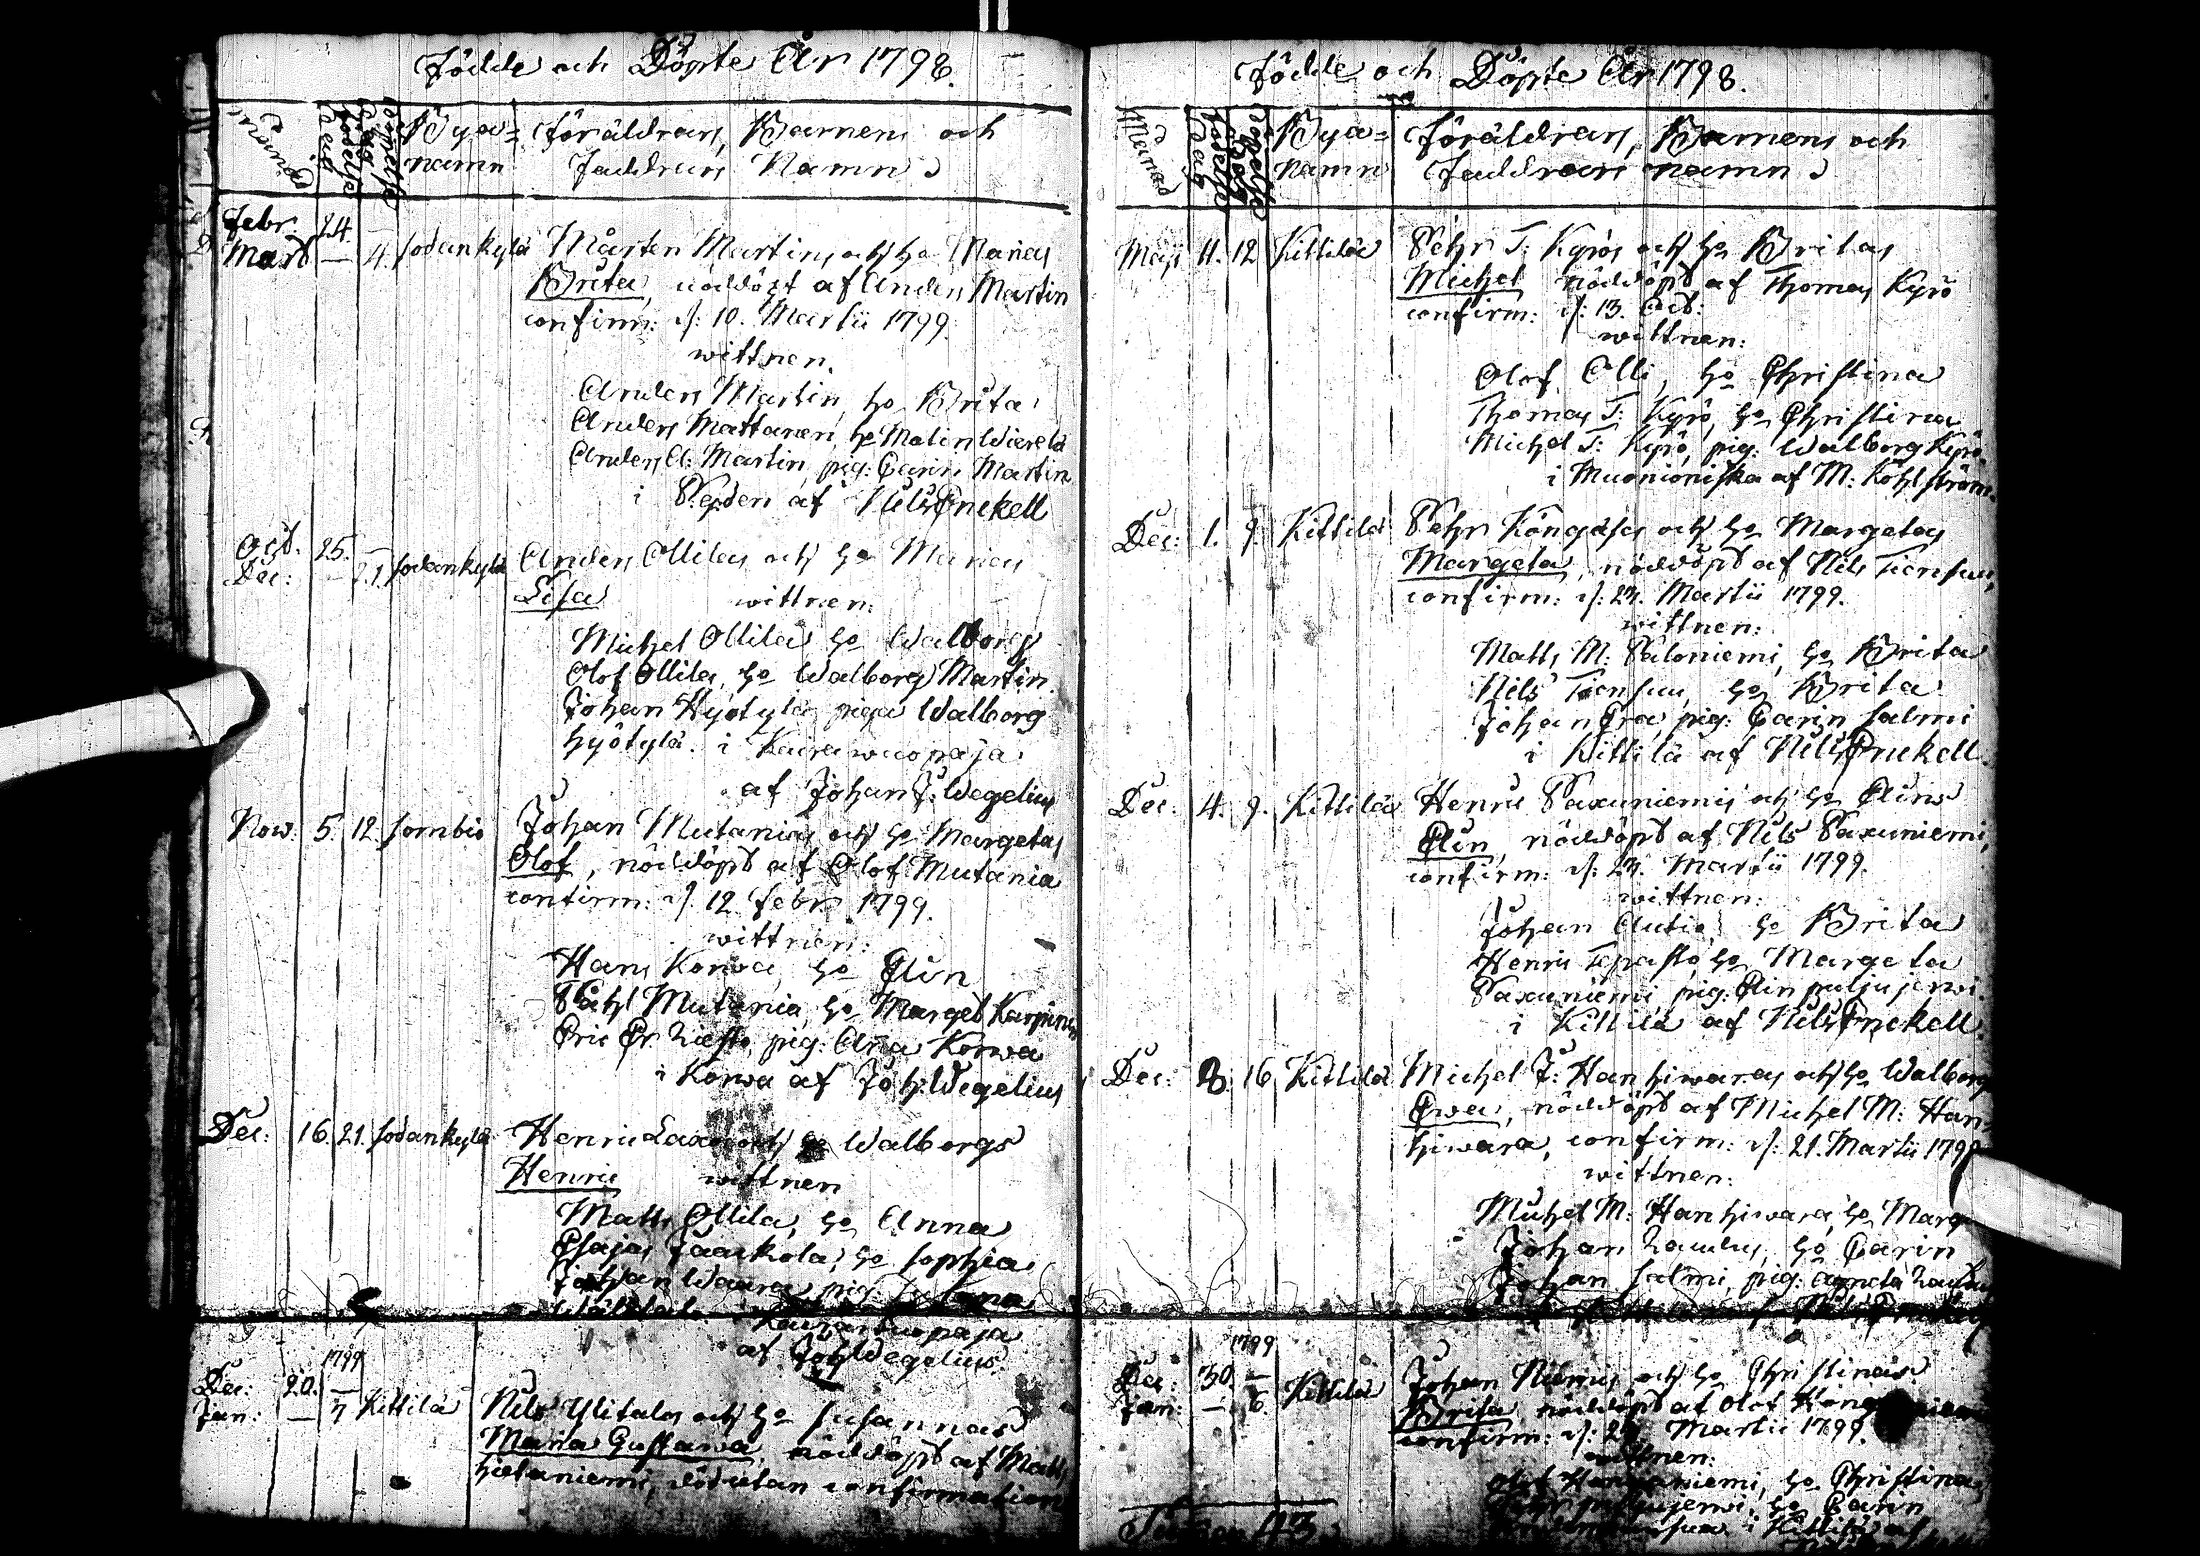 Födde och Döpte År 1798.
Månad
Byanamn
Föräldrars, Barnens och
Faddrars Namn
Febr. 24. —
Mart — 4. Sodankylä Mårten Martins och ho Marias
Brita, nöddöpt af Anders Martin
confirm: d: 10. Martii 1799.
wittnen.
Anders Martin, ho Brita
Anders Mattanen, ho Malin Wierela
Anders A: Martin, pig: Carin Martin
i Pepden af Nils Enckell
Oct. 25. —
Dec: — 21. Sodankylä Anders Ollilas och ho Marias
Lisa wittnen:
Michel Ollila ho Walborg
Olof Ollila, ho Walborg Martin
Johan Hyötylä, piga Walborg
Hyötylä. i Kairawuopaja
af Johan J: Wegelius
Now: 5. 12. Sombio Johan Mutanias och ho Margetas
Olof, nöddöpt af Olof Mutania
confirm: d: 12 Febr 1799.
wittnen:
Hans Korwa, ho Elin
Påhl Mutenia, ho Marget Karpinen
Eric Er: pig: Ana Korwa
i Korwa af Joh: Wegelius
Dec: 16. 21. Sodankylä Henric och ho Walborgs
Henric wittnen
Matts Ollila, ho Anna
Esajas Jaakola, ho Sophia
Johan Waara, pig:
af Joh: Wegelius
1799
Dec: 20. —
Jan: — 7 Kittilä Nils Ylitalos och ho Susannas
Maria Gustawa, nöddöpt af Matts
Hietaniemi, död utan confirmation
Födde och Döpte År 1798.
Månad
Byanamn
Föräldrars, Barnens och
Faddrars namn
11. 12 Kittilä Pehr T: Kyrös och ho Britas
Michel nöddöpt af Thomas Kyrö
confirm: d: 13. Oct:
wittnen:
Olof Olli, ho Christina
Thomas T: Kyrö, ho Christina
Michel T: Kyrö, pig: Walborg Kyrö
i Muonioniska af M: Kohlström.
Dec: 1. 9. Kittilä Pehr Köngäs och ho Margetas
Margeta, nöddöpt af Nils Tiensuu,
confirm: d: 24. Martii 1799.
wittnen:
Matts M: Paloniemi, ho Brita
Nils Tiensuu, ho Brita
Johan Era, pig: Carin Salmi
i Kittilä af Nils Enckell.
Dec: 4. 9. Kittilä Henric Paxuniemis och ho Elins
Elin, nöddöpt af Nils Paxuniemi,
confirm: d: 24. Martii 1799.
wittnen:
Johan Autio, ho Brita
Henric Tepasto, ho Margeta
Paxuniemi, pig: Elin Puljujerwi.
i Kittilä af Nils Enckell.
Dec: 8. 16. Kittilä Michel J: Hanhiwaras och ho Walborg
Ewa, nöddöpt af Michel M: Han-
hiwara, confirm: d: 21. Martii 1799
wittnen:
Michel M: Hanhiwara, ho Marg
Johan Zaulus, ho Carin
Johan Salmi, pig: Agneta
1799
Dec: 30. —
Jan: — 6. Kittilä Johan Nilimis och ho Christinas
Brita nöddöpt af Olof
confirm: d: 24. Martii 1799.
wittnen:
Olof ho Christina
ho Carin
i Kittilä af
Summa 43